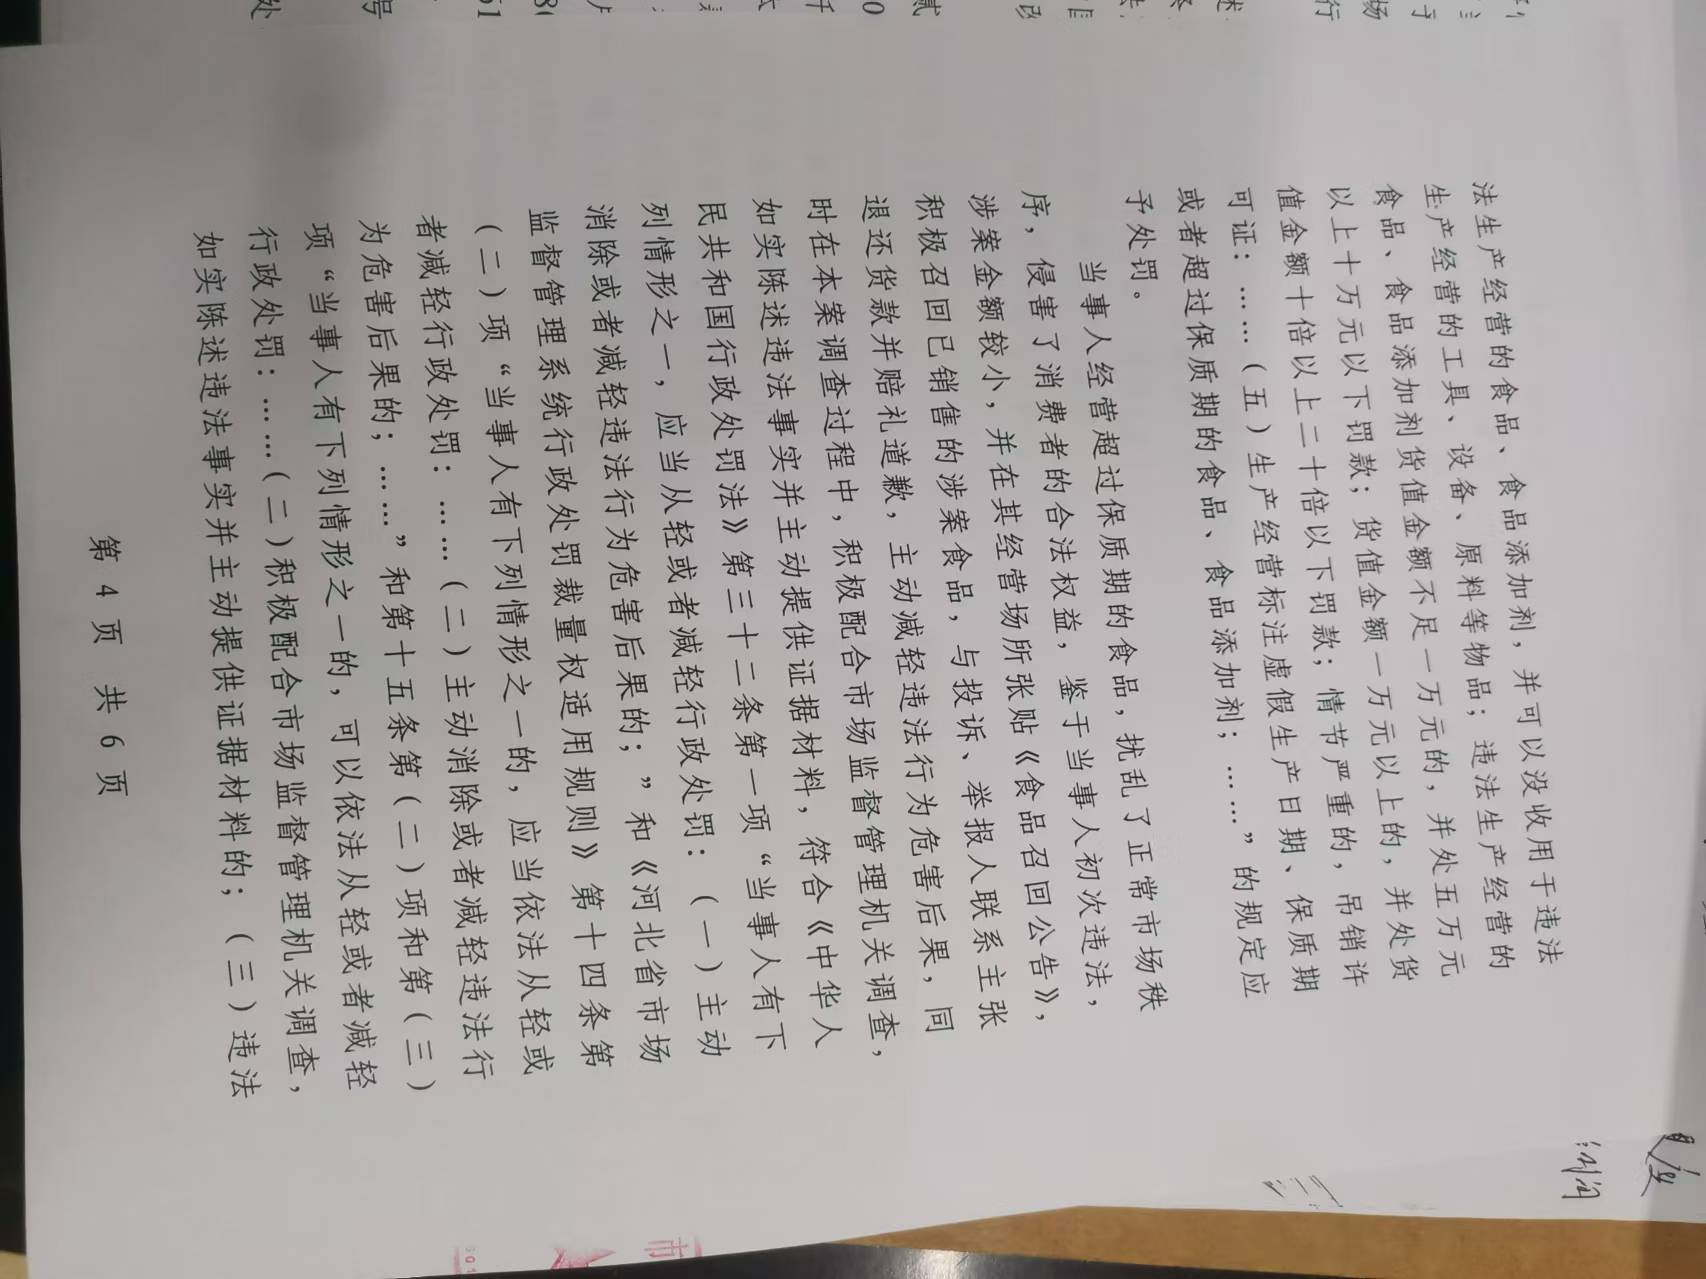 法生产经营的食品、食品添加剂，并可以没收用于违法
生产经营的工具、设备、原料等物品；违法生产经营的
食品、食品添加剂货值金额不足一万元的，并处五万元
以上十万元以下罚款；货值金额一万元以上的，并处货
值金额十倍以上二十倍以下罚款；情节严重的，吊销许
可证：……（五）生产经营标注虚假生产日期、保质期
或者超过保质期的食品、食品添加剂；……”的规定应
予处罚。
当事人经营超过保质期的食品，扰乱了正常市场秩
序，侵害了消费者的合法权益，鉴于当事人初次违法，
涉案金额较小，并在其经营场所张贴《食品召回公告》，
积极召回已销售的涉案食品，与投诉、举报人联系主张
退还货款并赔礼道歉，主动减轻违法行为危害后果，同
时在本案调查过程中，积极配合市场监督管理机关调查，
如实陈述违法事实并主动提供证据材料，符合《中华人
民共和国行政处罚法》第三十二条第一项“当事人有下
列情形之一，应当从轻或者减轻行政处罚：（一）主动
消除或者减轻违法行为危害后果的；”和《河北省市场
监督管理系统行政处罚裁量权适用规则》第十四条第
（二）项“当事人有下列情形之一的，应当依法从轻或
者减轻行政处罚：……（二）主动消除或者减轻违法行
为危害后果的；……”和第十五条第（二）项和第（三）
项“当事人有下列情形之一的，可以依法从轻或者减轻
行政处罚：……（二）积极配合市场监督管理机关调查，
如实陈述违法事实并主动提供证据材料的；（三）违法
第 4 页 共 6 页
市